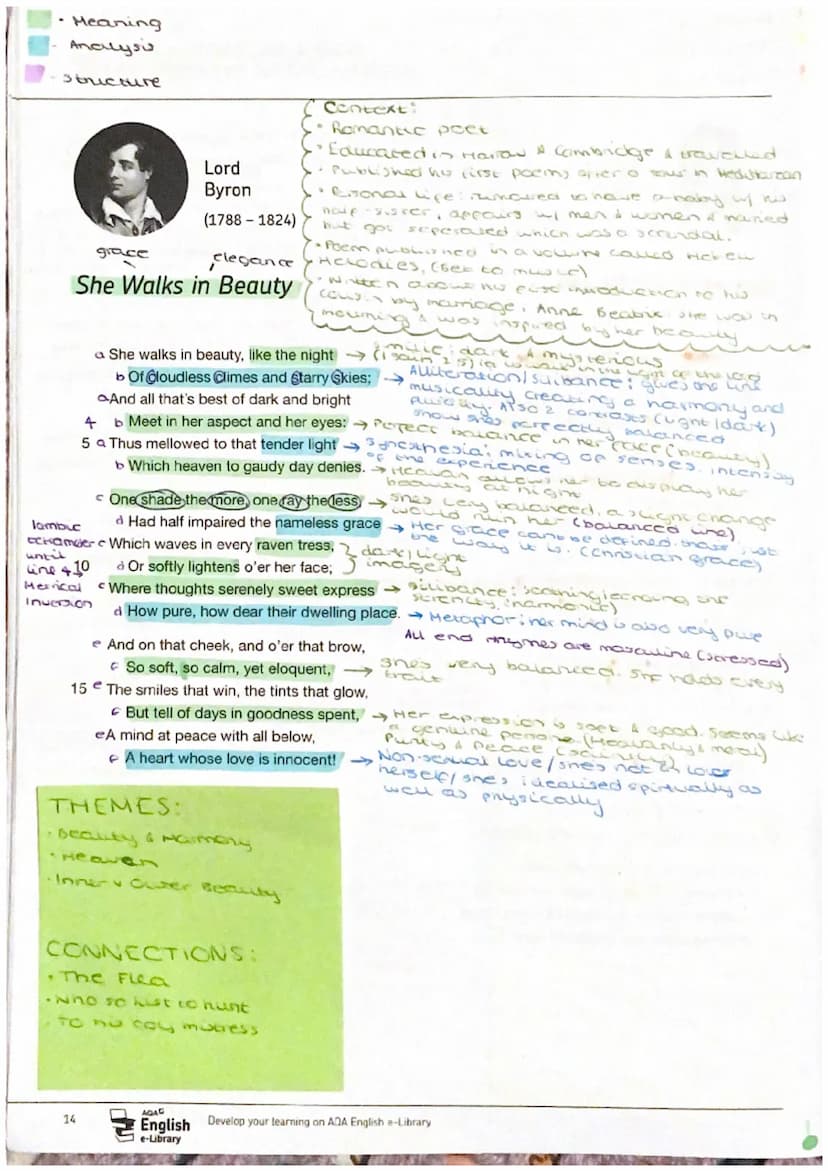 · Meaning
- Analysis
- Structure
Context:
· Romantic poet
· Educated in Harrow & Cambridge & travelled
· Published his first poems after a tour in Mediterranean
· Personal life: rumoured to have a baby w/ his
half-sister, affairs w/ men & women & married
but got seperated which was a scandal.
· Poem published in a volume called Hebrew
Melodies, (set to music)
· Written about his first introduction to his
cousin by marriage, Anne Beatrix. She was in
mourning & was inspired by her beauty
Lord
Byron
(1788 – 1824)
grace
elegance
She Walks in Beauty
a She walks in beauty, like the night → Simile: dark & mysterious
(1 John 1 5) to walk in the light of the lord
b Of cloudless climes and starry skies; → Alliteration/sibilance: gives the line
musicality creating a harmony and
fluidity. Also 2 contrasts (light/dark)
show she's perfectly balanced
a And all that's best of dark and bright
4 b Meet in her aspect and her eyes: → Perfect balance in her face (beauty)
5 a Thus mellowed to that tender light → Synesthesia: mixing of senses. intensity
of the experience
b Which heaven to gaudy day denies. → Heaven allows her to display her
beauty at night
c One shade the more, one ray the less, → She's very balanced, a slight change
would ruin her (balanced line)
d Had half impaired the nameless grace → Her grace cannot be defined, just
the way it is. (Christian grace)
Iambic
tetrameter
until
line 4
Metrical
Inversion
c Which waves in every raven tress,
10 d Or softly lightens o'er her face;
dark/light
imagery
c Where thoughts serenely sweet express → Sibilance: the
serenity, (harmonic)
d How pure, how dear their dwelling place. → Metaphor: her mind is also very pure
All end rhymes are masculine (stressed)
e And on that cheek, and o'er that brow,
f So soft, so calm, yet eloquent, → She's very balanced. She holds every
trait
15 e The smiles that win, the tints that glow,
f But tell of days in goodness spent, → Her expression is soft & good. Seems like
a genuine person. (Heavenly & meek)
Purity & Peace
e A mind at peace with all below,
f A heart whose love is innocent! → Non-sexual love/she's not
herself/she's idealised spiritually as
well as physically
THEMES:
· Beauty & Harmony
· Heaven
· Inner v Outer Beauty
CONNECTIONS:
· The Flea
· Who so list to hunt
· To his coy mistress
14
AQA
English
e-Library
Develop your learning on AQA English e-Library